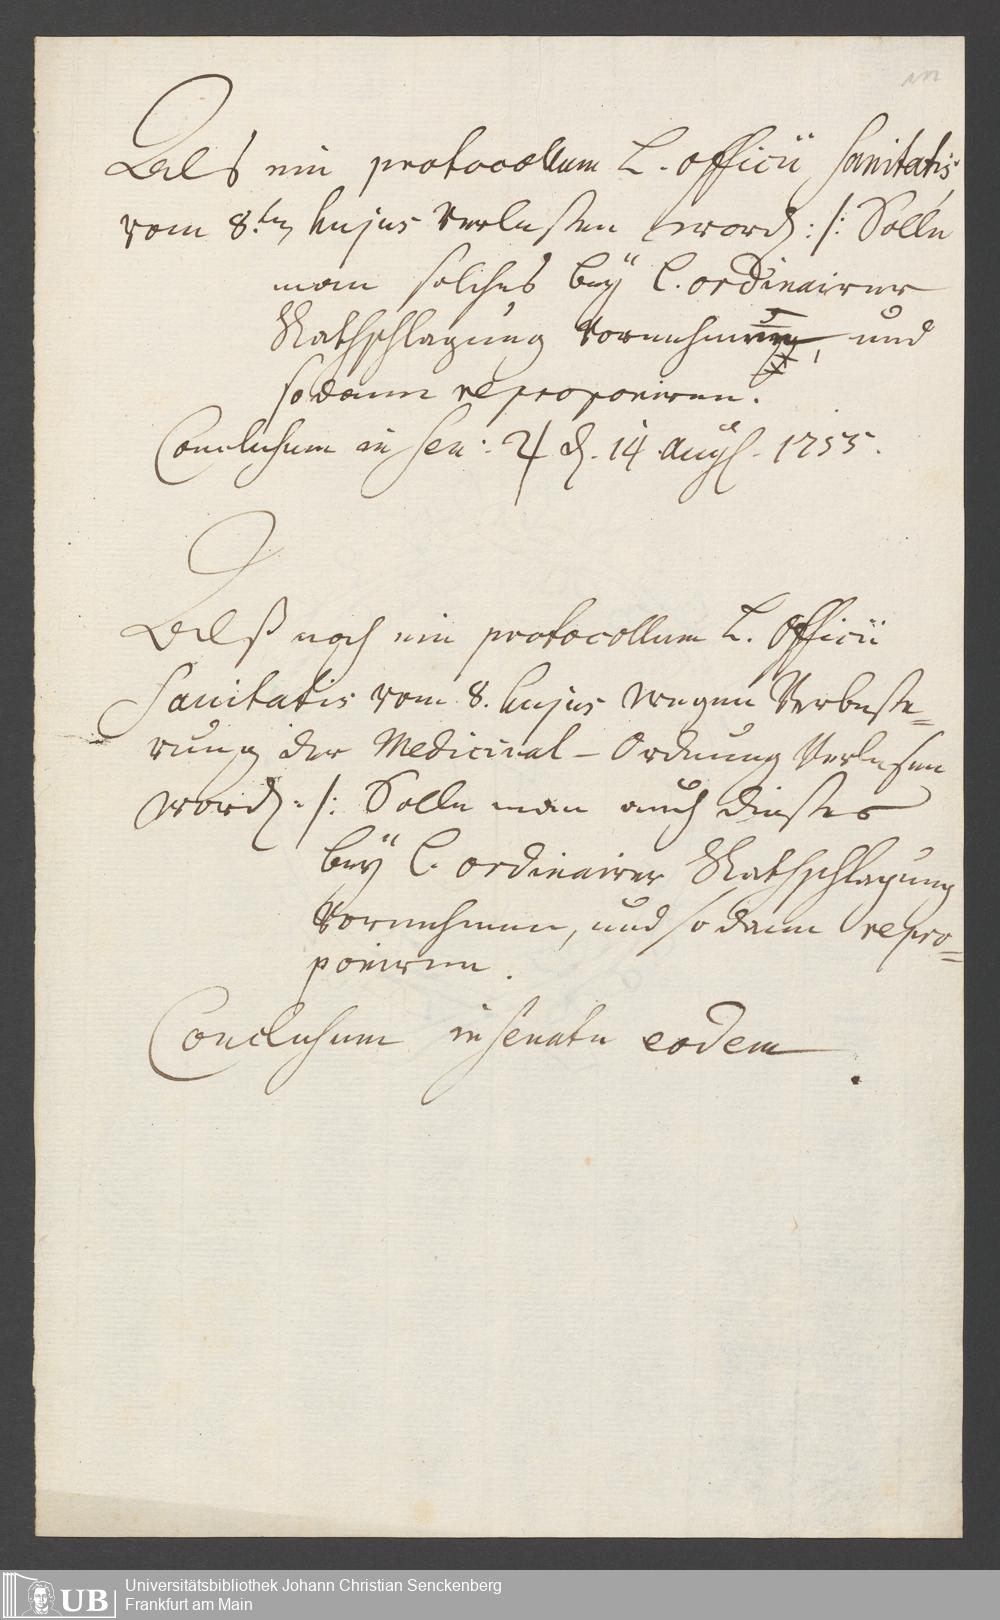 Als ein protocollum L. officii Sanitatis
vom 8.ten hujus verlesen word: /: Solle
man solches bey L. ordinairer
Rathschlagung vornehmen, und
sodann reproponiren.
Conclusum in Sen: ♃ d. 14 Aug. 1755.
Alß noch ein protocollum L. Officii
Sanitatis vom 8. hujus wegen Verbeße=
rung der Medicinal-Ordnung verlesen
word: /: Solle man auch dießes
bey L. ordinairer Rathschlagung
vornehmen, und sodann repro=
poniren.
Conclusum in Senatu eodem
UB
Universitätsbibliothek Johann Christian Senckenberg
Frankfurt am Main